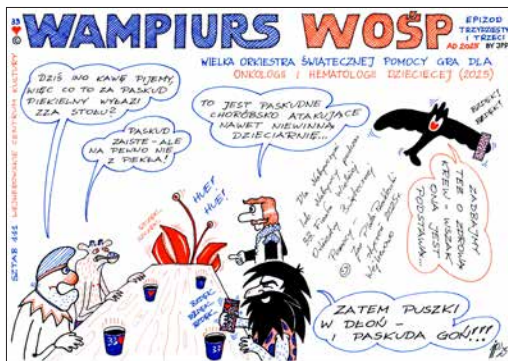 33
WAMPIURS WOŚP
EPIZOD
TRZYDZIESTY
I TRZECI
AD 2025 BY JPP
WIELKA ORKIESTRA ŚWIĄTECZNEJ POMOCY GRA DLA
ONKOLOGII I HEMATOLOGII DZIECIĘCEJ (2025)
SZTAB 111 WEJHEROWSKIE CENTRUM KULTURY
DZIŚ INO KAWĘ PIJEMY,
WIĘC CO TO ZA PASKUD
PIEKIELNY WYŁAZI
ZZA STOŁU?
PASKUD
ZAISTE – ALE
NA PEWNO NIE
Z PIEKŁA!
TO JEST PASKUDNE
CHORÓBSKO ATAKUJĄCE
NAWET NIEWINNĄ
DZIECIARNIĘ...
HUE!
HUE!
BRDĘK!
BRDĘK!
ZADBAJMY
TEŻ O ZDROWĄ
KREW – WSZAK
ONA JEST
PODSTAWĄ...
BRDĘK...
BRDĘK...
BRDĘK...
33
ZATEM PUSZKI
W DŁOŃ –
I PASKUDA GOŃ!!!